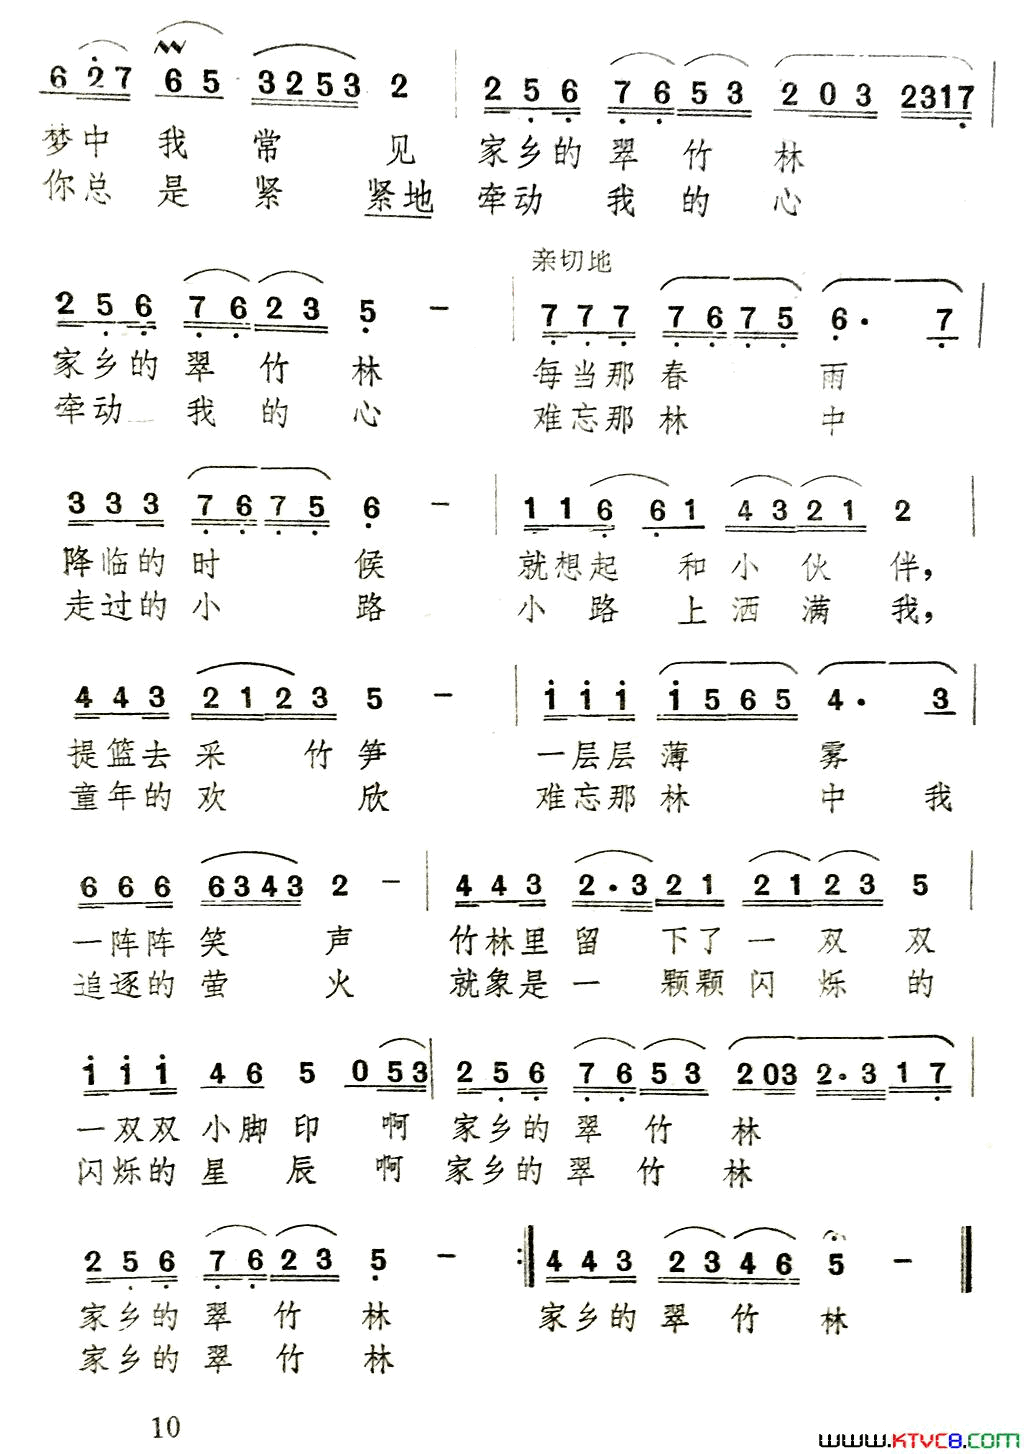 6 2 7 6 5 3 2 5 3 2 2 5 6 7 6 5 3 2 0 3 2 3 1 7
梦中 我 常 见 家乡的 翠 竹 林
你总 是 紧 紧地 牵动 我 的 心
亲切地
2 5 6 7 6 2 3 5 - 7 7 7 7 6 7 5 6· 7
家乡的 翠 竹 林 每当那 春 雨
牵动 我 的 心 难忘那 林 中
3 3 3 7 6 7 5 6 - 1 1 6 6 1 4 3 2 1 2
降临的 时 候 就想起 和 小 伙 伴,
走过的 小 路 小 路 上 洒 满 我,
4 4 3 2 1 2 3 5 - i i i i 5 6 5 4· 3
提篮去 采 竹 笋 一层层 薄 雾
童年的 欢 欣 难忘那 林 中 我
6 6 6 6 3 4 3 2 - 4 4 3 2·3 2 1 2 1 2 3 5
一阵阵 笑 声 竹林里 留 下了 一 双 双
追逐的 萤 火 就象是 一 颗颗 闪 烁 的
i i i 4 6 5 0 5 3 2 5 6 7 6 5 3 2 0 3 2·3 1 7
一双双 小脚 印 啊 家乡的 翠 竹 林
闪烁的 星 辰 啊 家乡的 翠 竹 林
2 5 6 7 6 2 3 5 - 4 4 3 2 3 4 6 5 -
家乡的 翠 竹 林 家乡的 翠 竹 林
家乡的 翠 竹 林
10
www.KTVC8.COM